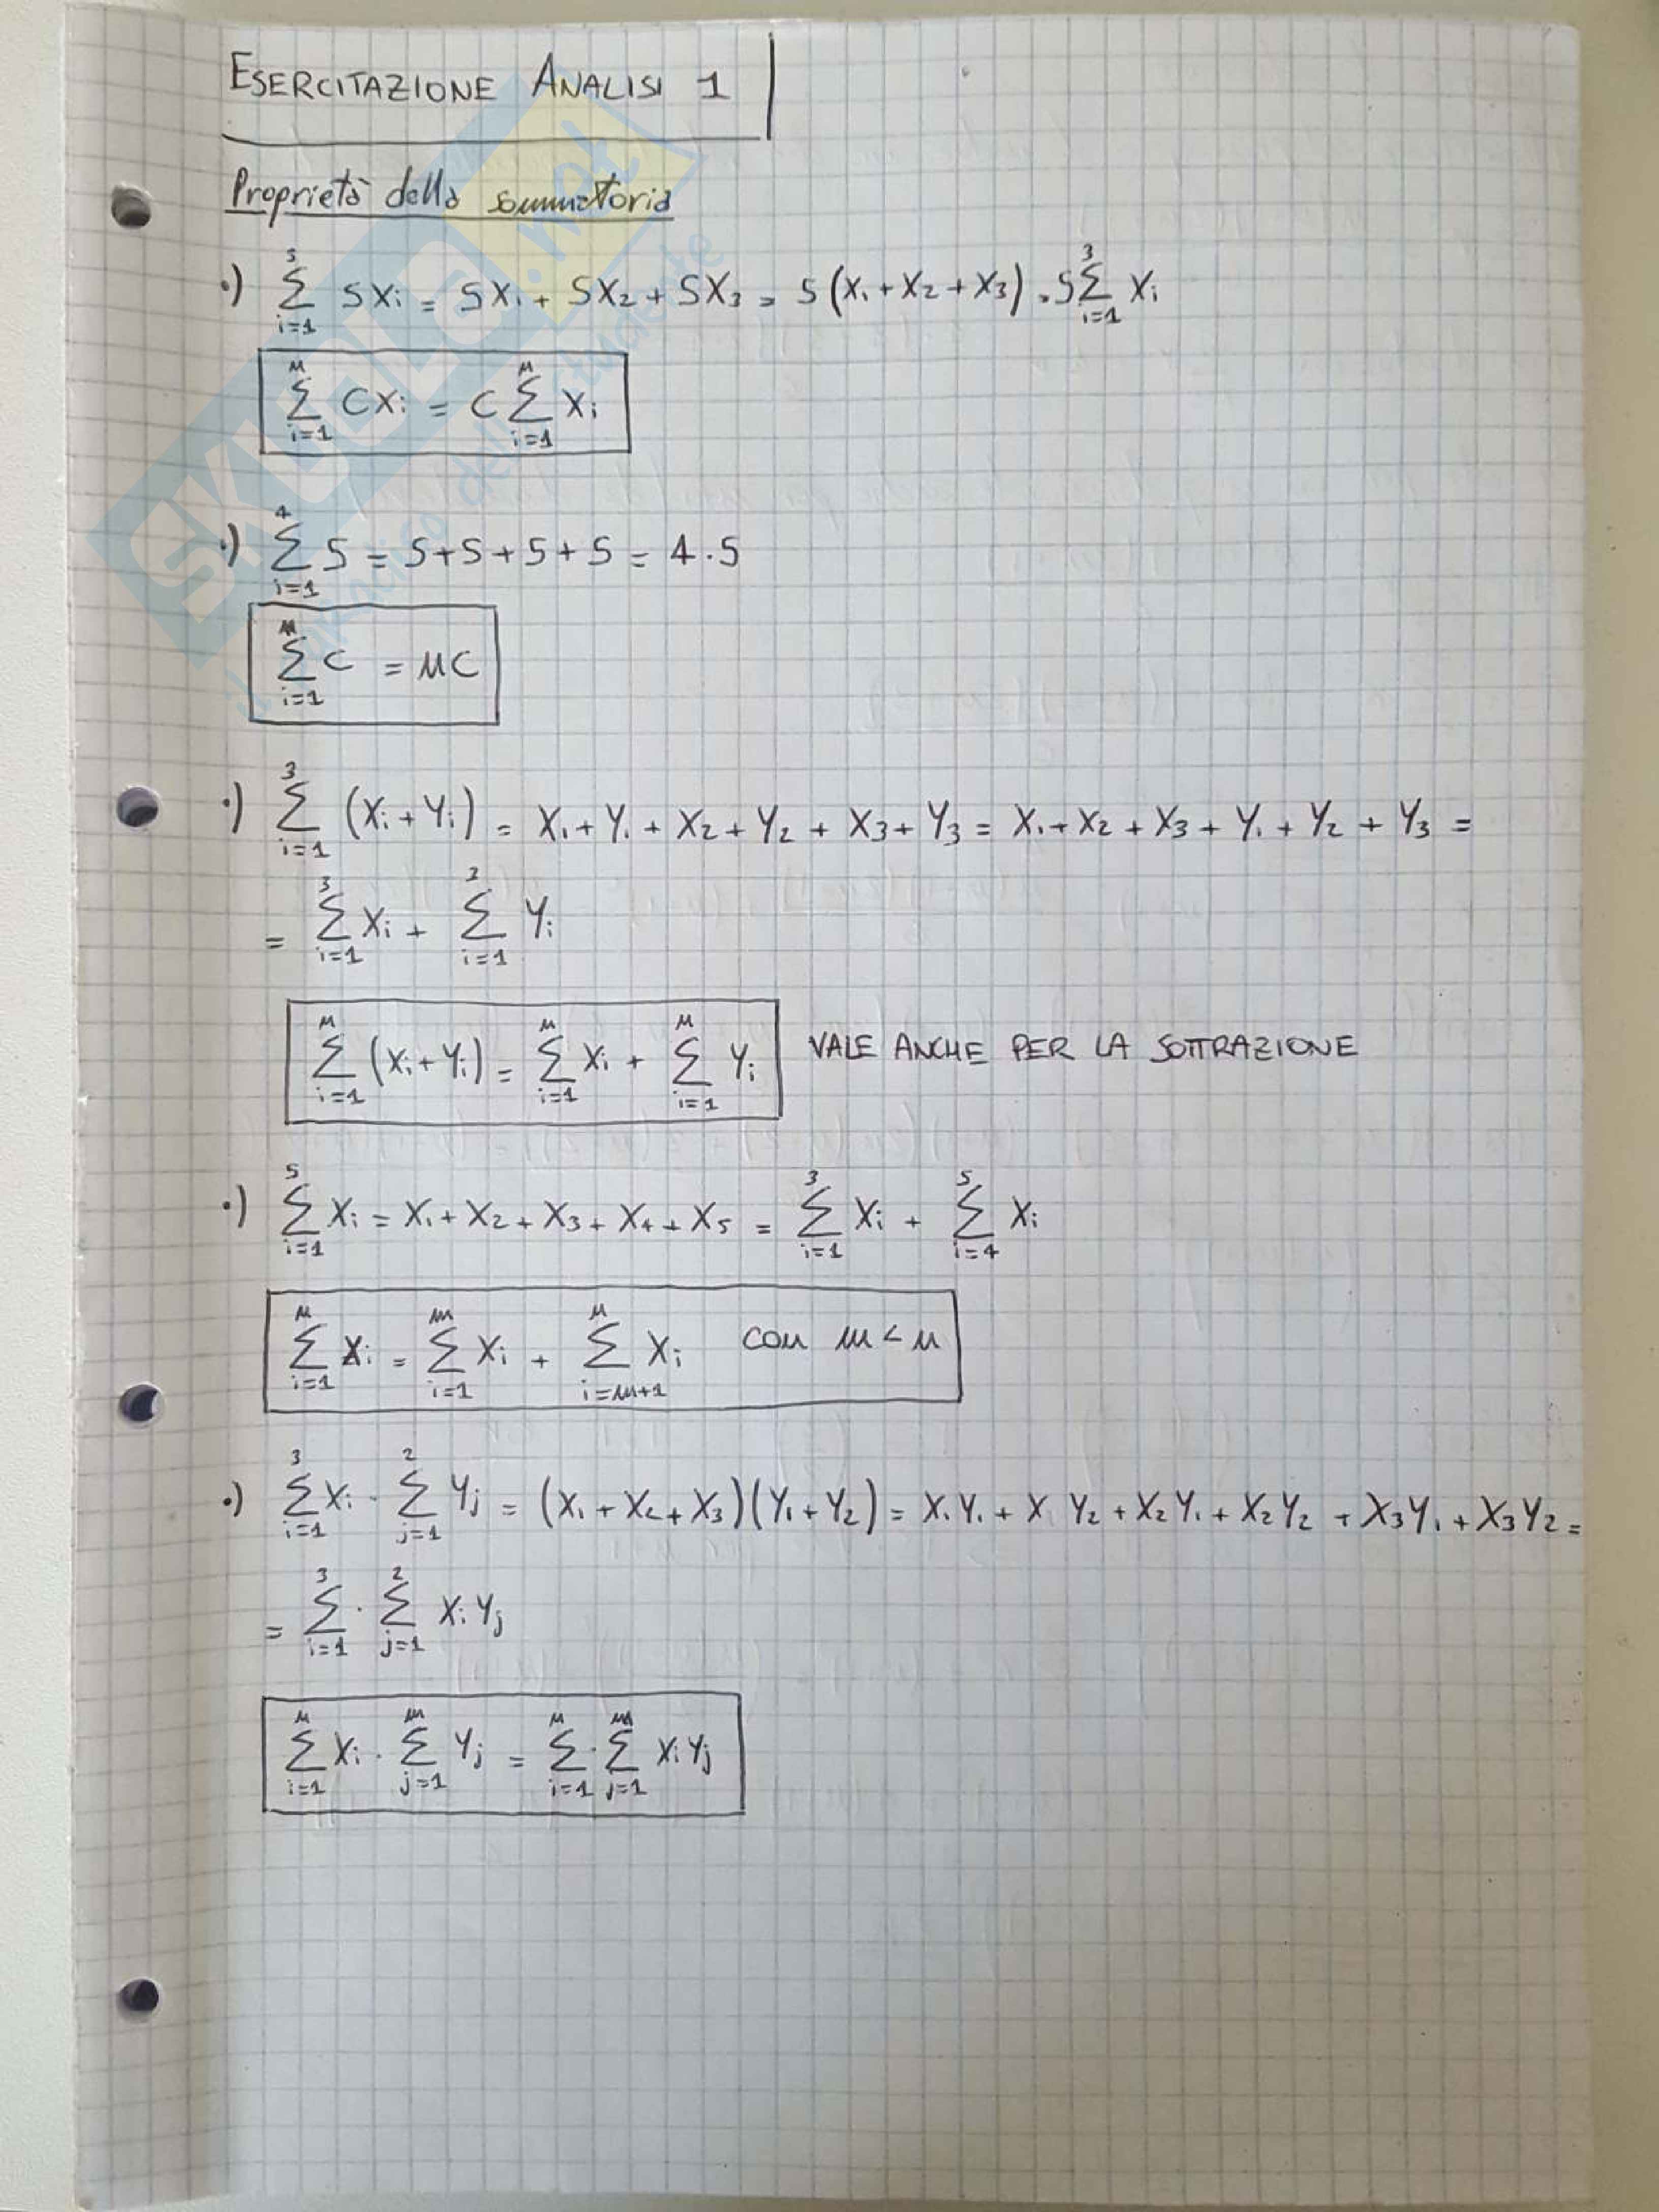 ESERCITAZIONE ANALISI 1
Proprietà della sommatoria
•) 3∑i=1 5Xi = 5X1 + 5X2 + 5X3 = 5(X1 + X2 + X3) = 5 3∑i=1 Xi
n∑i=1 CXi = C n∑i=1 Xi
•) 4∑i=1 5 = 5+5+5+5 = 4·5
n∑i=1 C = nC
•) 3∑i=1 (Xi + Yi) = X1 + Y1 + X2 + Y2 + X3 + Y3 = X1 + X2 + X3 + Y1 + Y2 + Y3 =
= 3∑i=1 Xi + 3∑i=1 Yi
n∑i=1 (Xi + Yi) = n∑i=1 Xi + n∑i=1 Yi VALE ANCHE PER LA SOTTRAZIONE
•) 5∑i=1 Xi = X1 + X2 + X3 + X4 + X5 = 3∑i=1 Xi + 5∑i=4 Xi
n∑i=1 Xi = m∑i=1 Xi + n∑i=m+1 Xi con m < n
•) 3∑i=1 Xi · 2∑j=1 Yj = (X1 + X2 + X3)(Y1 + Y2) = X1Y1 + X1Y2 + X2Y1 + X2Y2 + X3Y1 + X3Y2 =
= 3∑i=1 · 2∑j=1 XiYj
n∑i=1 Xi · m∑j=1 Yj = n∑i=1 · m∑j=1 XiYj
SKUOLA.net